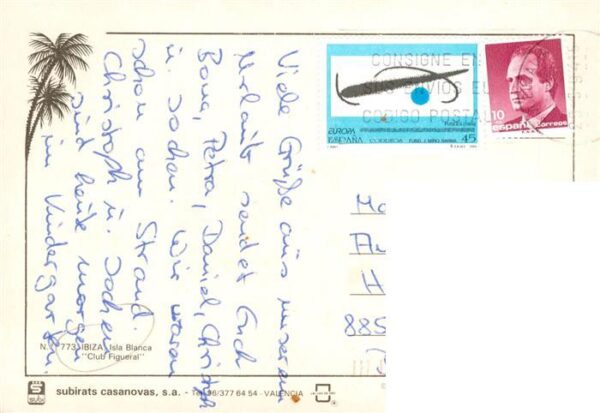 Viele Grüße aus unserem
Urlaub sendet Euch
Bona, Petra, Daniel, Christoph
u. Jochen. Wir waren
schon am Strand.
Christoph u. Jochen
sind heute morgen
im Kindergarten.
CONSIGNE EN
SUS ENVIOS EL
CODIGO POSTAL
EUROPA
ESPAÑA
45
10
españa
correos
Ha
A
H
885
N.º 773 IBIZA, Isla Blanca
"Club Figueral"
subi
subirats casanovas, s.a. - Tel. 96/377 64 54 - VALENCIA